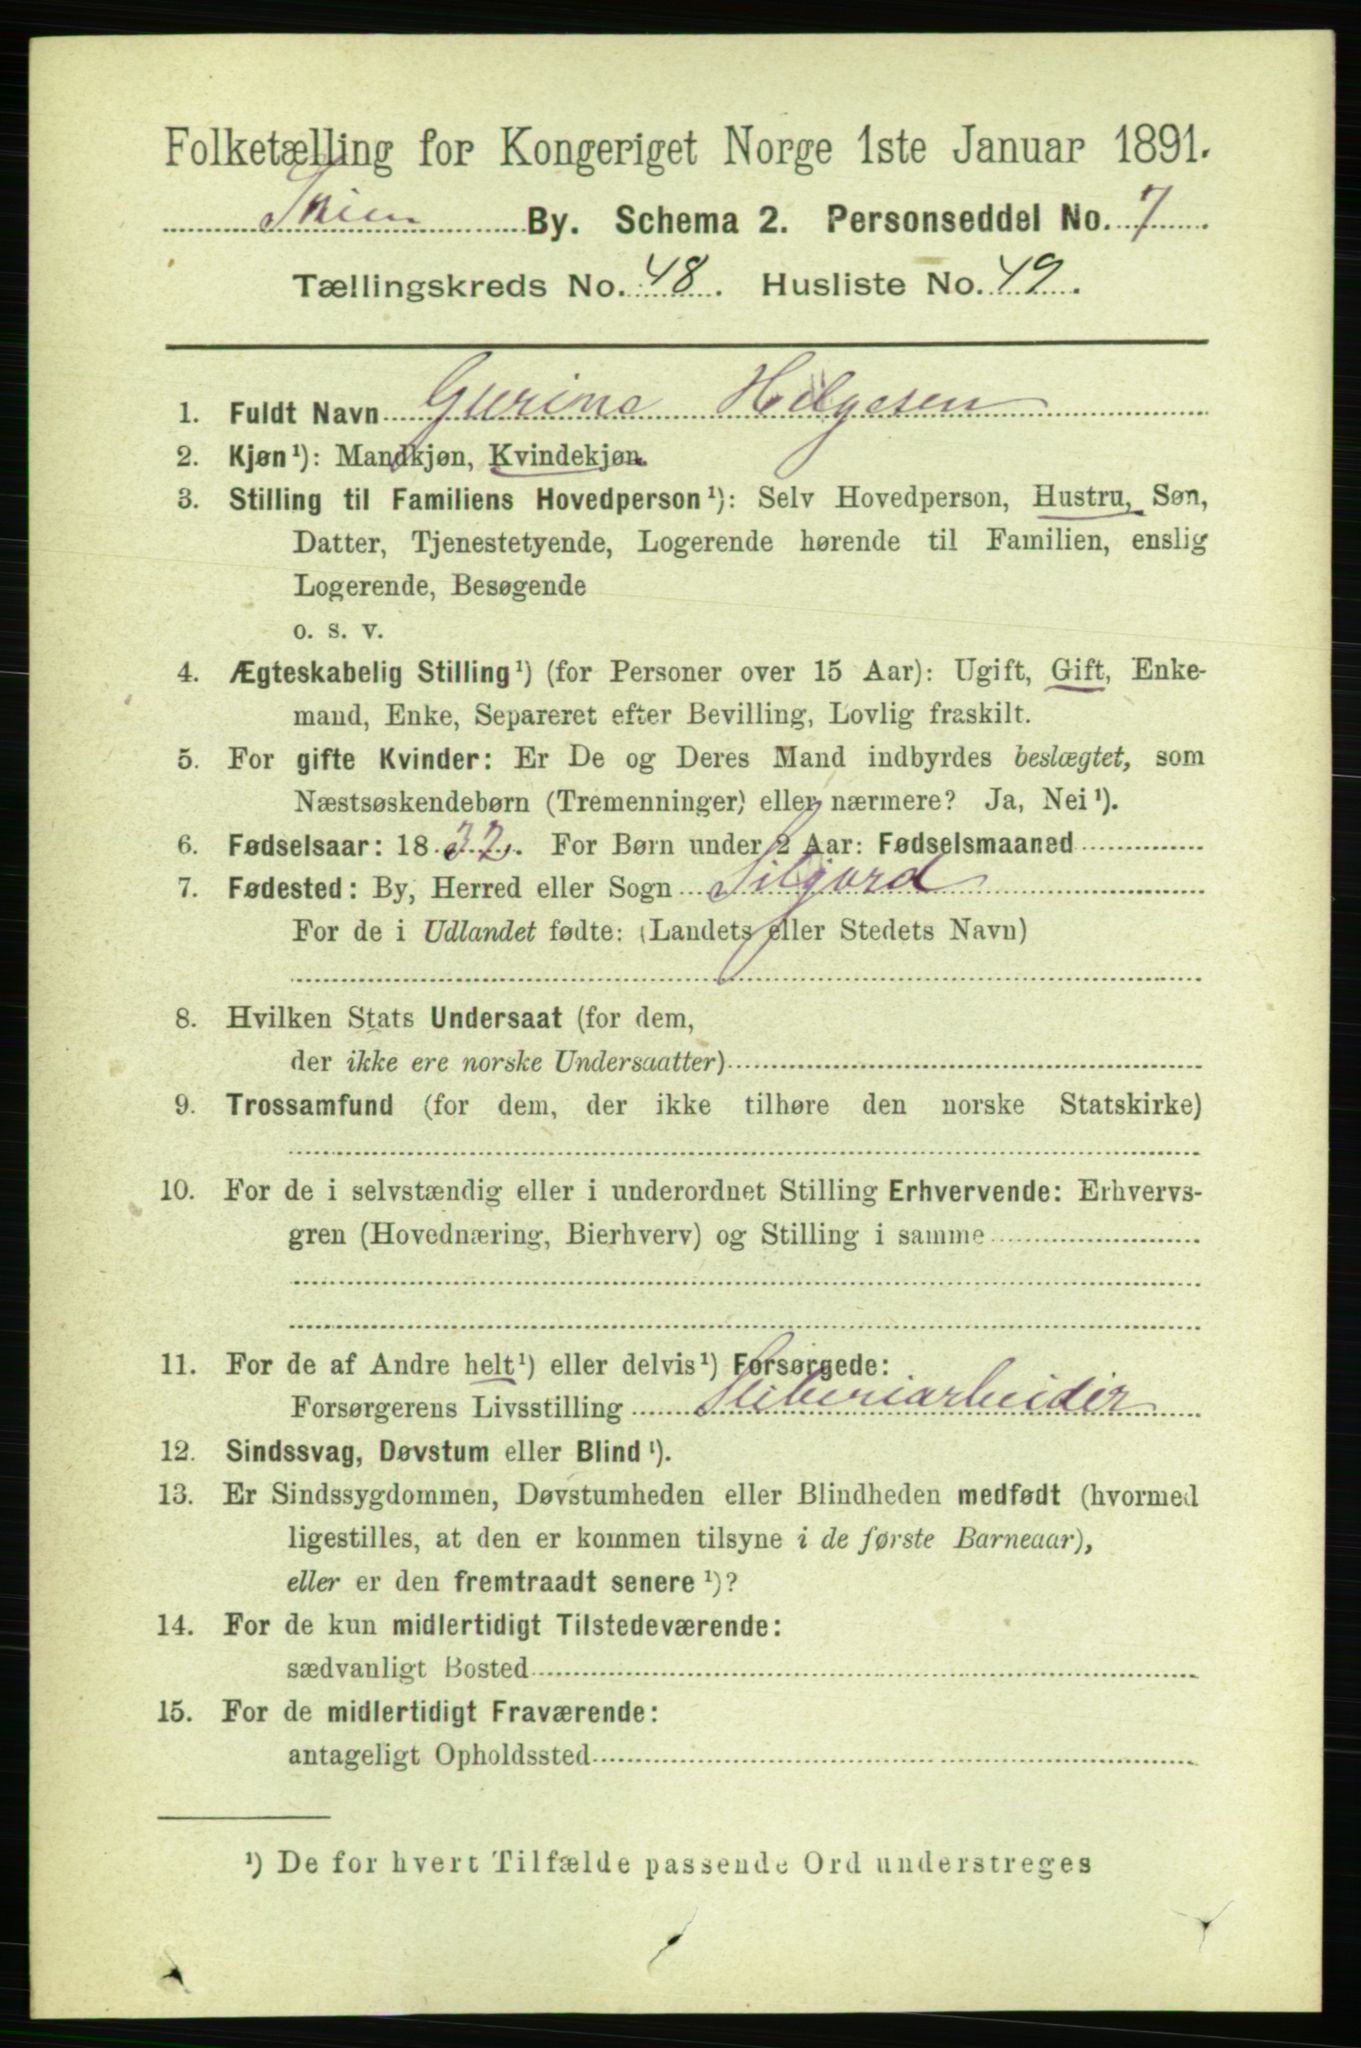 Folketælling for Kongeriget Norge 1ste Januar 1891.
Skien By. Schema 2. Personseddel No. 7
Tællingskreds No. 48. Husliste No. 49.
1. Fuldt Navn Gurine Helgesen
2. Kjøn¹): Mandkjøn, Kvindekjøn.
3. Stilling til Familiens Hovedperson¹): Selv Hovedperson, Hustru, Søn,
Datter, Tjenestetyende, Logerende hørende til Familien, enslig
Logerende, Besøgende
o. s. v.
4. Ægteskabelig Stilling¹) (for Personer over 15 Aar): Ugift, Gift, Enke-
mand, Enke, Separeret efter Bevilling, Lovlig fraskilt.
5. For gifte Kvinder: Er De og Deres Mand indbyrdes beslægtet, som
Næstsøskendebørn (Tremenninger) eller nærmere? Ja, Nei¹).
6. Fødselsaar: 1832. For Børn under 2 Aar: Fødselsmaaned
7. Fødested: By, Herred eller Sogn Siljord
For de i Udlandet fødte: (Landets eller Stedets Navn)
8. Hvilken Stats Undersaat (for dem,
der ikke ere norske Undersaatter)
9. Trossamfund (for dem, der ikke tilhøre den norske Statskirke)
10. For de i selvstændig eller i underordnet Stilling Erhvervende: Erhvervs-
gren (Hovednæring, Bierhverv) og Stilling i samme
11. For de af Andre helt¹) eller delvis¹) Forsørgede:
Forsørgerens Livsstilling Sliberiarbeider
12. Sindssvag, Døvstum eller Blind¹).
13. Er Sindssygdommen, Døvstumheden eller Blindheden medfødt (hvormed
ligestilles, at den er kommen tilsyne i de første Barneaar),
eller er den fremtraadt senere¹)?
14. For de kun midlertidigt Tilstedeværende:
sædvanligt Bosted
15. For de midlertidigt Fraværende:
antageligt Opholdssted
¹) De for hvert Tilfælde passende Ord understreges